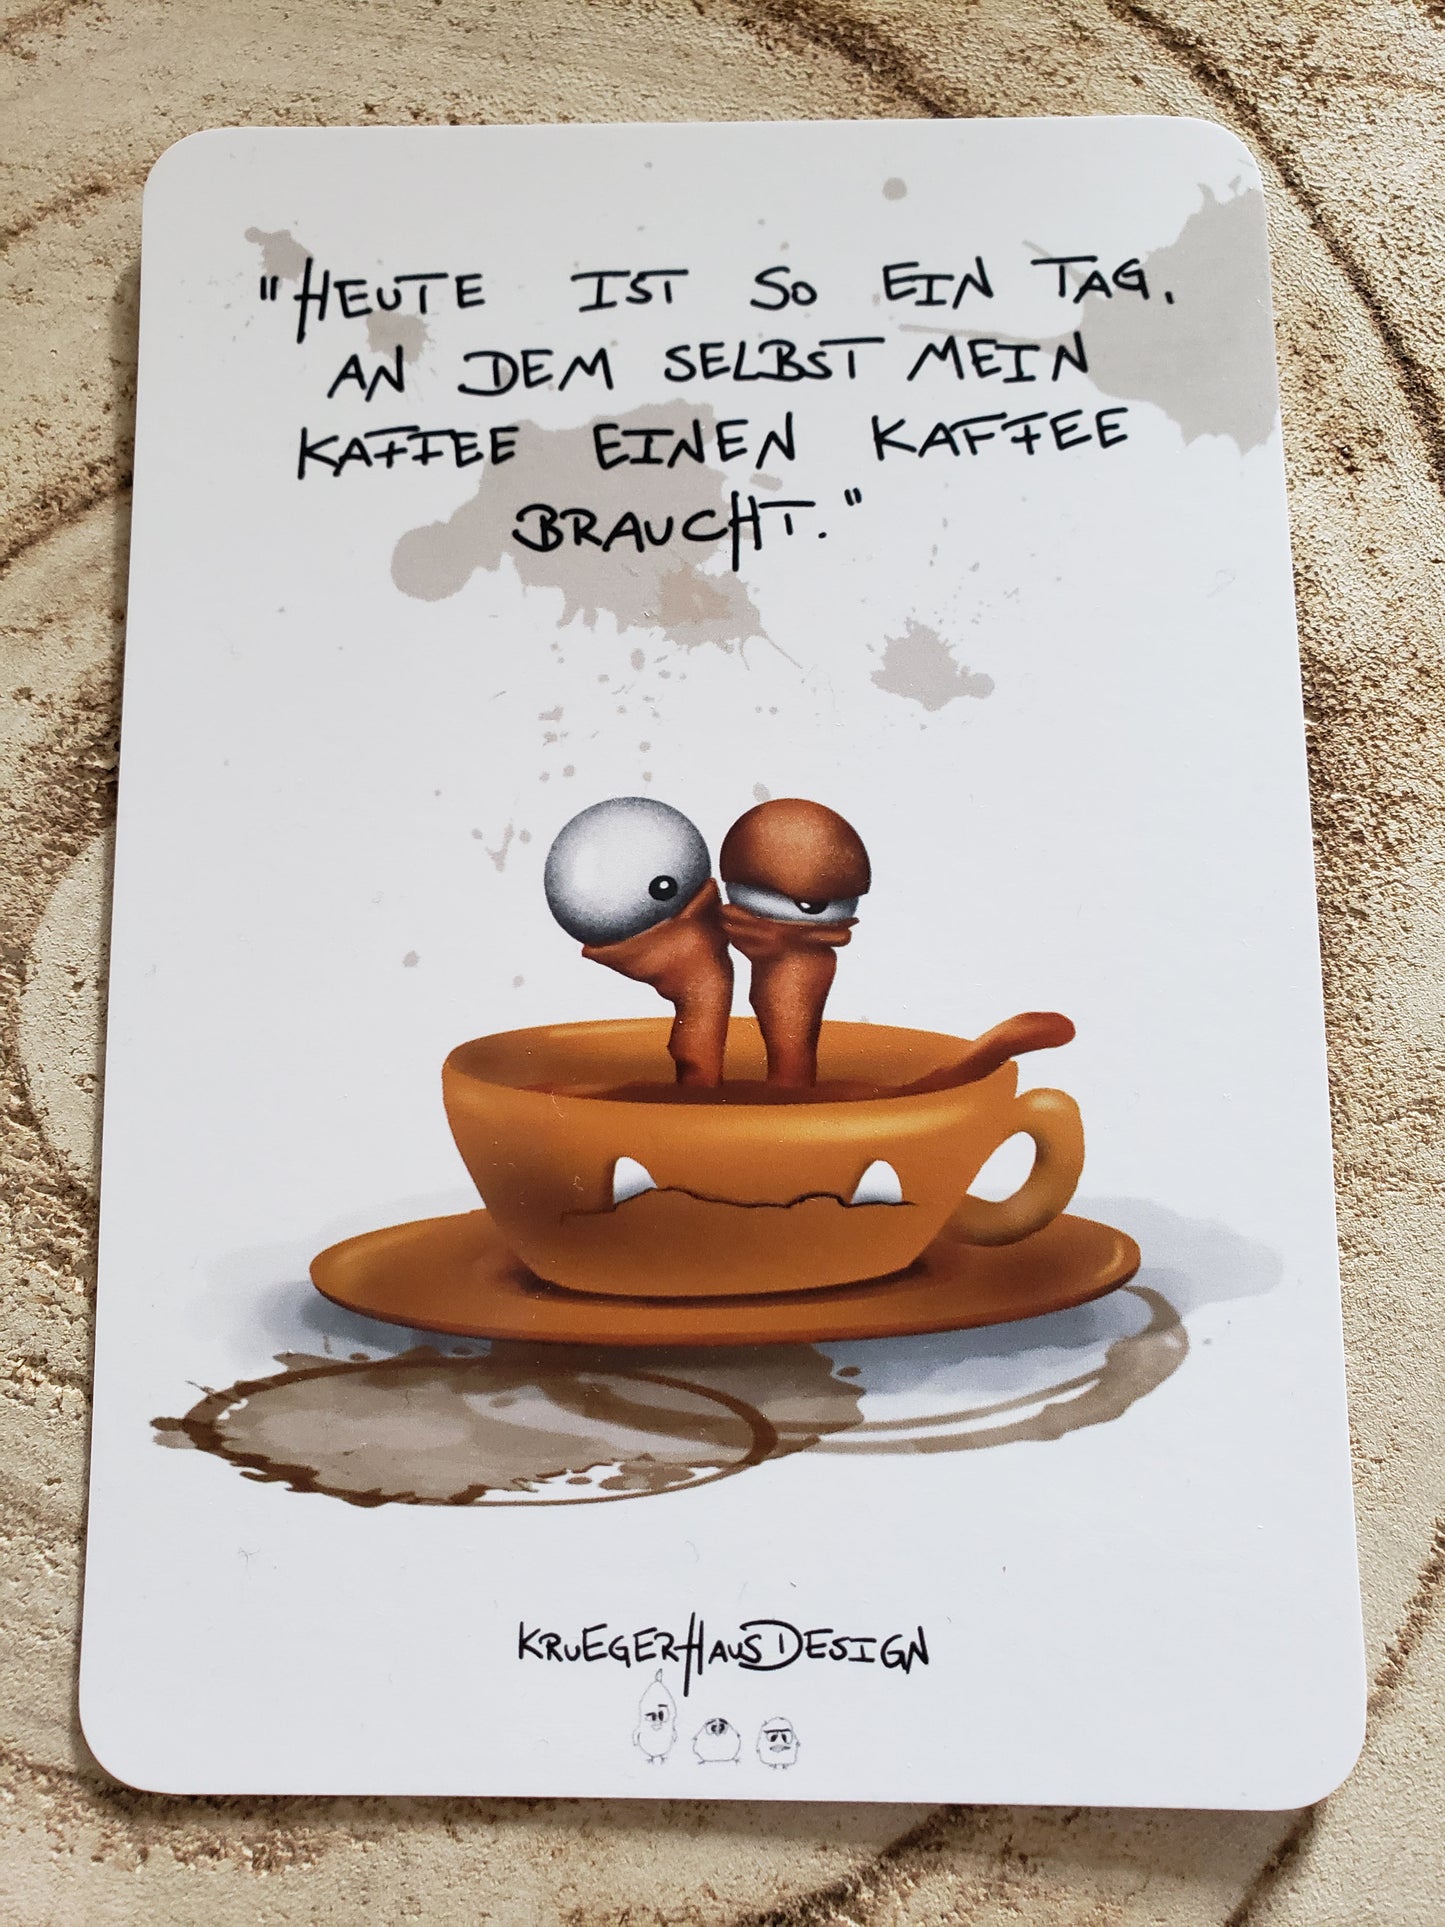 "HEUTE IST SO EIN TAG,
AN DEM SELBST MEIN
KAFFEE EINEN KAFFEE
BRAUCHT."
KRUEGERHAUSDESIGN